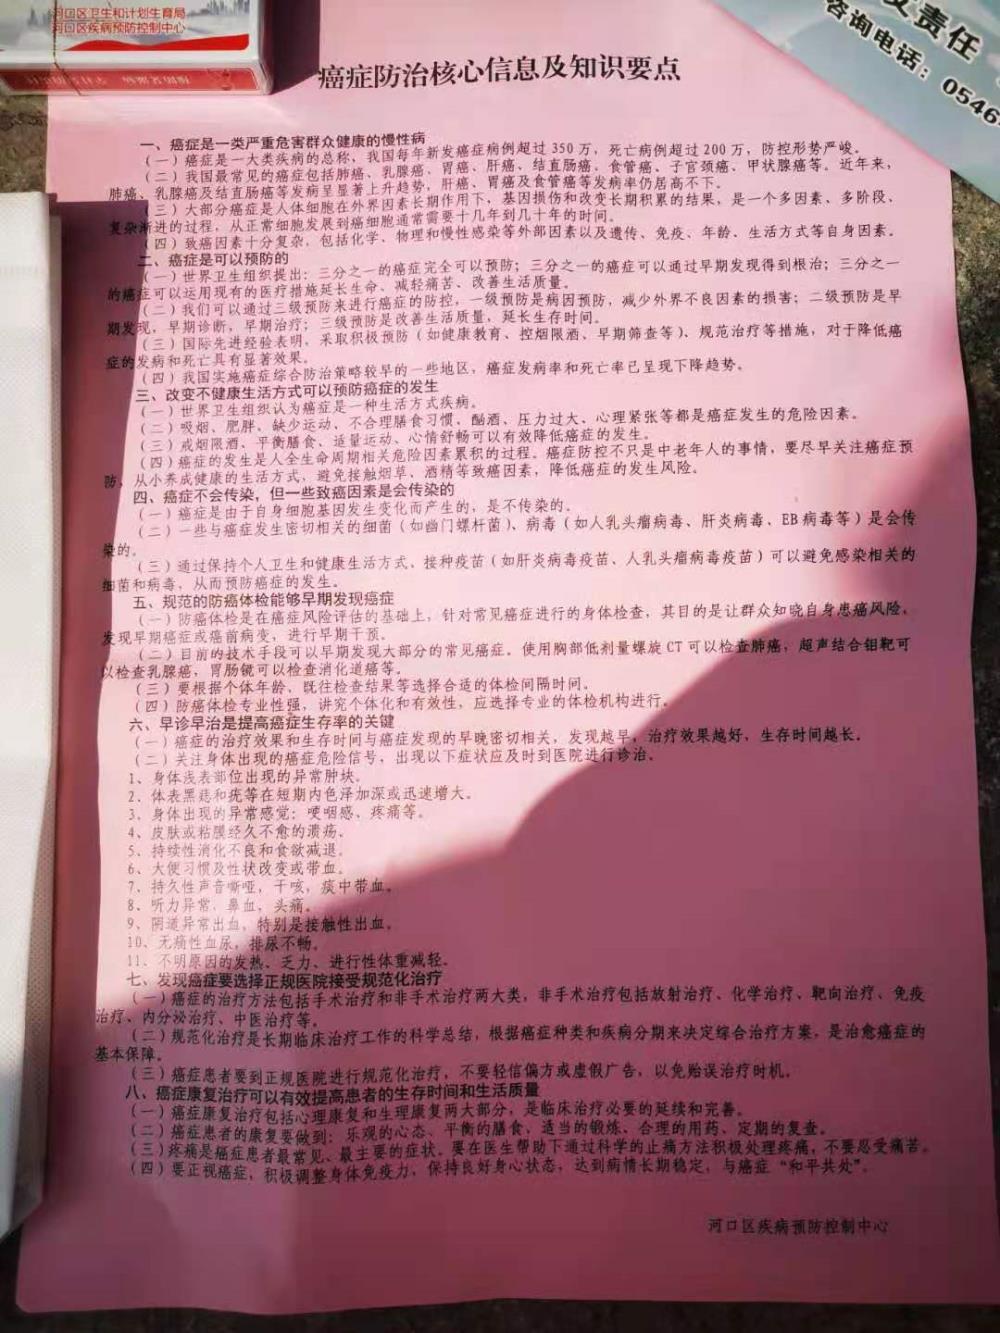 河口区卫生和计划生育局
河口区疾病预防控制中心
责任
咨询电话：0546
癌症防治核心信息及知识要点
一、癌症是一类严重危害群众健康的慢性病
（一）癌症是一大类疾病的总称，我国每年新发癌症病例超过 350 万，死亡病例超过 200 万，防控形势严峻。
（二）我国最常见的癌症包括肺癌、乳腺癌、胃癌、肝癌、结直肠癌、食管癌、子宫颈癌、甲状腺癌等。近年来，
肺癌、乳腺癌及结直肠癌等发病呈显著上升趋势，肝癌、胃癌及食管癌等发病率仍居高不下。
（三）大部分癌症是人体细胞在外界因素长期作用下，基因损伤和改变长期积累的结果，是一个多因素、多阶段、
复杂渐进的过程，从正常细胞发展到癌细胞通常需要十几年到几十年的时间。
（四）致癌因素十分复杂，包括化学、物理和慢性感染等外部因素以及遗传、免疫、年龄、生活方式等自身因素。
二、癌症是可以预防的
（一）世界卫生组织提出：三分之一的癌症完全可以预防；三分之一的癌症可以通过早期发现得到根治；三分之一
的癌症可以运用现有的医疗措施延长生命、减轻痛苦、改善生活质量。
（二）我们可以通过三级预防来进行癌症的防控，一级预防是病因预防，减少外界不良因素的损害；二级预防是早
期发现，早期诊断，早期治疗；三级预防是改善生活质量，延长生存时间。
（三）国际先进经验表明，采取积极预防（如健康教育、控烟限酒、早期筛查等）、规范治疗等措施，对于降低癌
症的发病和死亡具有显著效果。
（四）我国实施癌症综合防治策略较早的一些地区，癌症发病率和死亡率已呈现下降趋势。
三、改变不健康生活方式可以预防癌症的发生
（一）世界卫生组织认为癌症是一种生活方式疾病。
（二）吸烟、肥胖、缺少运动、不合理膳食习惯、酗酒、压力过大、心理紧张等都是癌症发生的危险因素。
（三）戒烟限酒、平衡膳食、适量运动、心情舒畅可以有效降低癌症的发生。
（四）癌症的发生是人全生命周期相关危险因素累积的过程。癌症防控不只是中老年人的事情，要尽早关注癌症预
防，从小养成健康的生活方式，避免接触烟草、酒精等致癌因素，降低癌症的发生风险。
四、癌症不会传染，但一些致癌因素是会传染的
（一）癌症是由于自身细胞基因发生变化而产生的，是不传染的。
（二）一些与癌症发生密切相关的细菌（如幽门螺杆菌）、病毒（如人乳头瘤病毒、肝炎病毒、EB 病毒等）是会传
染的。
（三）通过保持个人卫生和健康生活方式、接种疫苗（如肝炎病毒疫苗、人乳头瘤病毒疫苗）可以避免感染相关的
细菌和病毒，从而预防癌症的发生。
五、规范的防癌体检能够早期发现癌症
（一）防癌体检是在癌症风险评估的基础上，针对常见癌症进行的身体检查，其目的是让群众知晓自身患癌风险，
发现早期癌症或癌前病变，进行早期干预。
（二）目前的技术手段可以早期发现大部分的常见癌症。使用胸部低剂量螺旋 CT 可以检查肺癌，超声结合钼靶可
以检查乳腺癌，胃肠镜可以检查消化道癌等。
（三）要根据个体年龄、既往检查结果等选择合适的体检间隔时间。
（四）防癌体检专业性强，讲究个体化和有效性，应选择专业的体检机构进行。
六、早诊早治是提高癌症生存率的关键
（一）癌症的治疗效果和生存时间与癌症发现的早晚密切相关，发现越早，治疗效果越好，生存时间越长。
（二）关注身体出现的癌症危险信号，出现以下症状应及时到医院进行诊治。
1、身体浅表部位出现的异常肿块。
2、体表黑痣和疣等在短期内色泽加深或迅速增大。
3、身体出现的异常感觉：哽咽感、疼痛等。
4、皮肤或粘膜经久不愈的溃疡。
5、持续性消化不良和食欲减退。
6、大便习惯及性状改变或带血。
7、持久性声音嘶哑，干咳，痰中带血。
8、听力异常，鼻血，头痛。
9、阴道异常出血，特别是接触性出血。
10、无痛性血尿，排尿不畅。
11、不明原因的发热、乏力、进行性体重减轻。
七、发现癌症要选择正规医院接受规范化治疗
（一）癌症的治疗方法包括手术治疗和非手术治疗两大类，非手术治疗包括放射治疗、化学治疗、靶向治疗、免疫
治疗、内分泌治疗、中医治疗等。
（二）规范化治疗是长期临床治疗工作的科学总结，根据癌症种类和疾病分期来决定综合治疗方案，是治愈癌症的
基本保障。
（三）癌症患者要到正规医院进行规范化治疗，不要轻信偏方或虚假广告，以免贻误治疗时机。
八、癌症康复治疗可以有效提高患者的生存时间和生活质量
（一）癌症康复治疗包括心理康复和生理康复两大部分，是临床治疗必要的延续和完善。
（二）癌症患者的康复要做到：乐观的心态、平衡的膳食，适当的锻炼、合理的用药、定期的复查。
（三）疼痛是癌症患者最常见、最主要的症状。要在医生帮助下通过科学的止痛方法积极处理疼痛，不要忍受痛苦。
（四）要正视癌症，积极调整身体免疫力，保持良好身心状态，达到病情长期稳定，与癌症“和平共处”。
河口区疾病预防控制中心